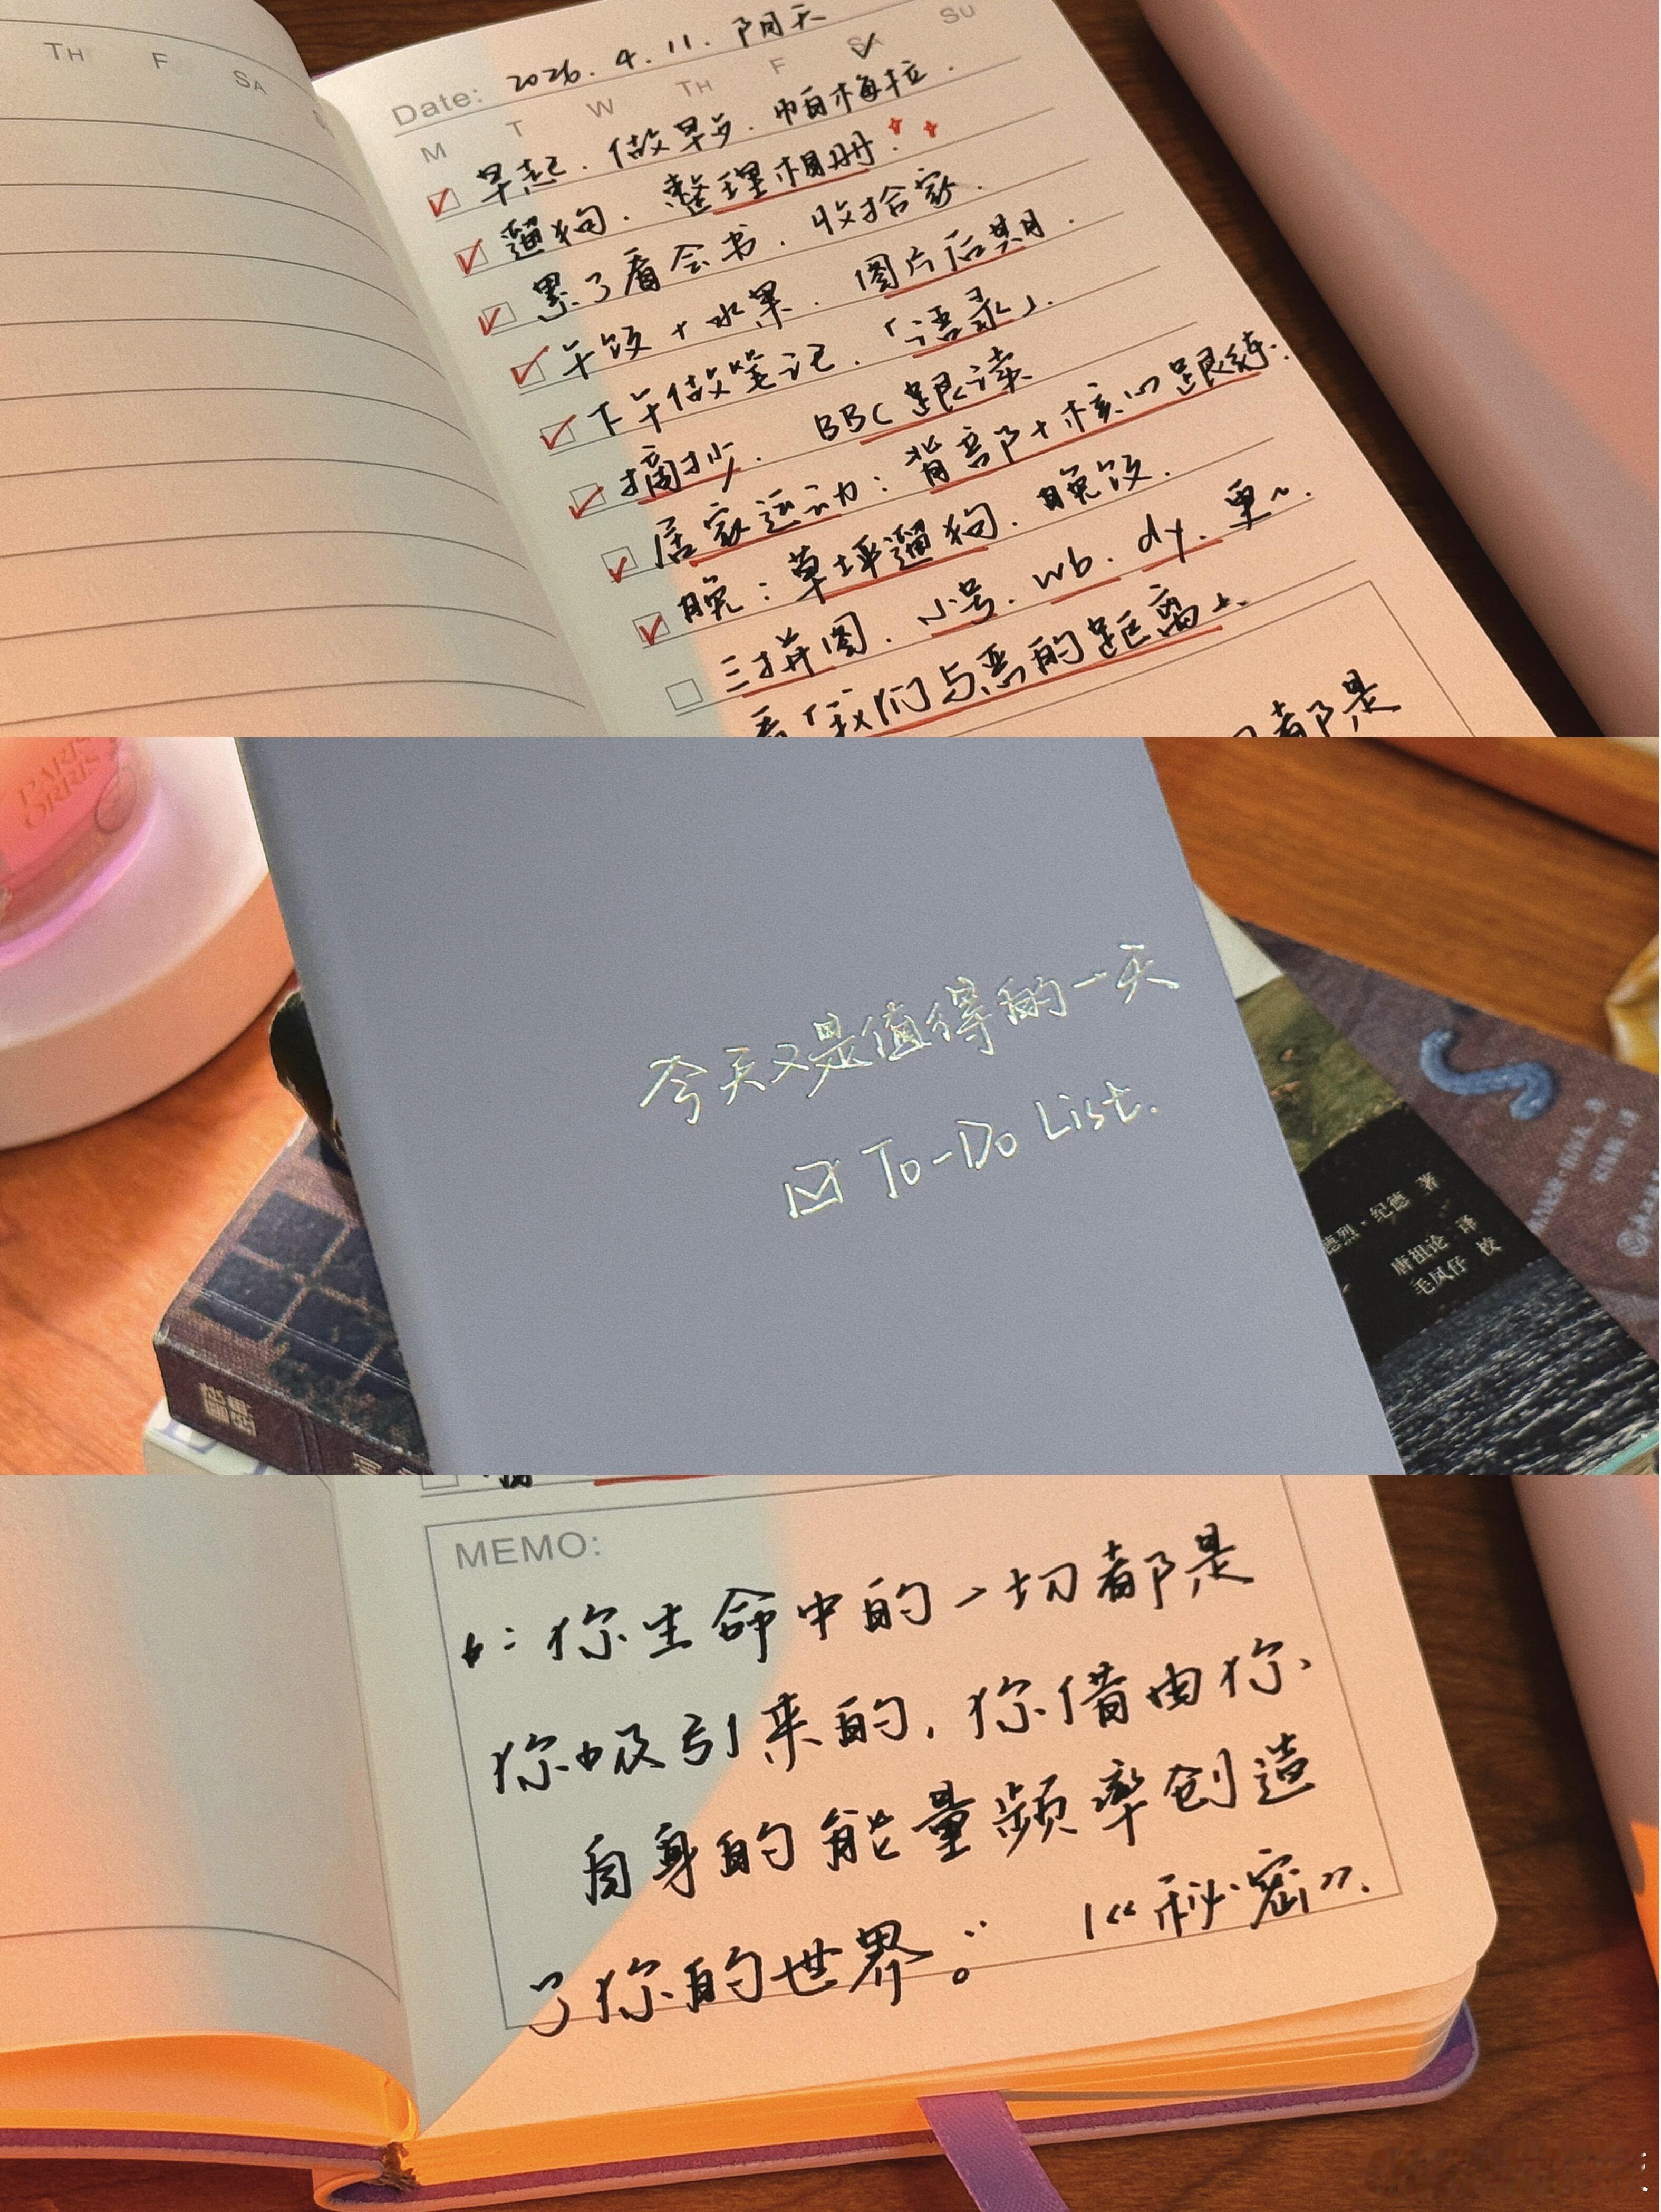 TH F SA
Date: 2026.4.11. 阴天
M T W TH F SA SU
早起. 做早歺. 帕梅拉.
遛狗. 整理相册.
累了看会书. 收拾家.
午饭+水果. 图片后期.
下午做笔记.「语录」.
摘抄. BBC 跟读
居家运动: 背部+核心跟练.
晚: 草坪遛狗. 晚饭.
三拼图. 小号. wb. dy. 更~.
看「我们与恶的距离」.
都是
PARIS
ORRIS
今天又是值得的一天
To-Do List.
德烈·纪德 著
唐祖论 译
毛凤仔 校
MEMO:
“: 你生命中的一切都是
你吸引来的, 你借由你
自身的能量频率创造
了你的世界。” 1《秘密》.